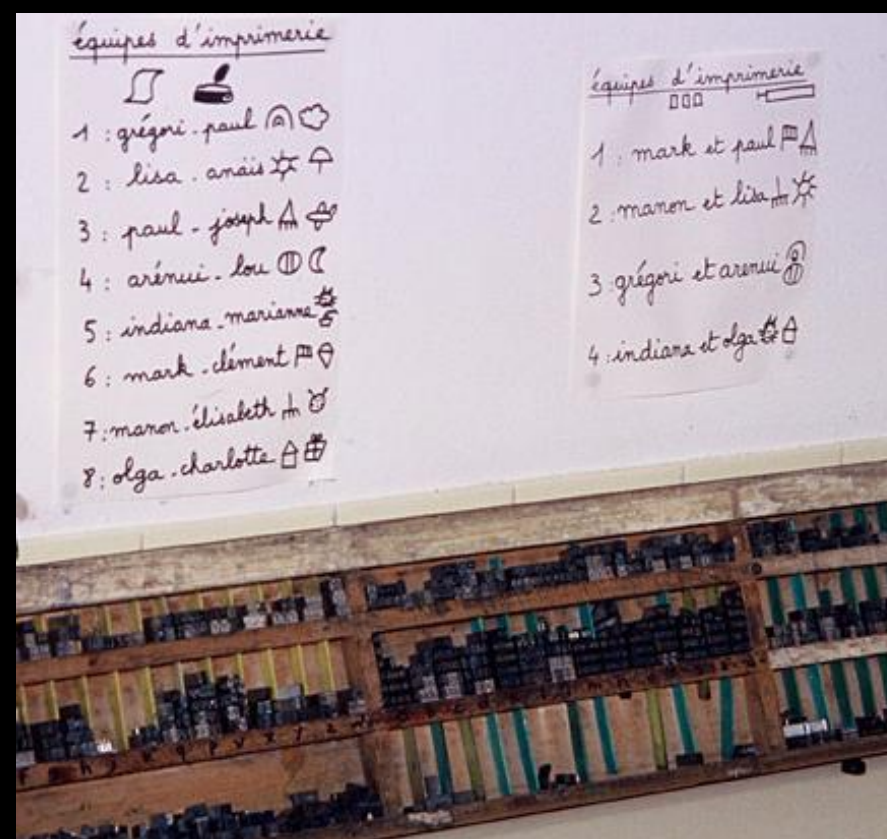 équipes d'imprimerie
1 : grégori - paul
2 : lisa - anaïs
3 : paul - joseph
4 : arénui - lou
5 : indiana - marianne
6 : mark - clément
7 : manon - élisabeth
8 : olga - charlotte
équipes d'imprimerie
1 : mark et paul
2 : manon et lisa
3 grégori et arenui
4 : indiana et olga